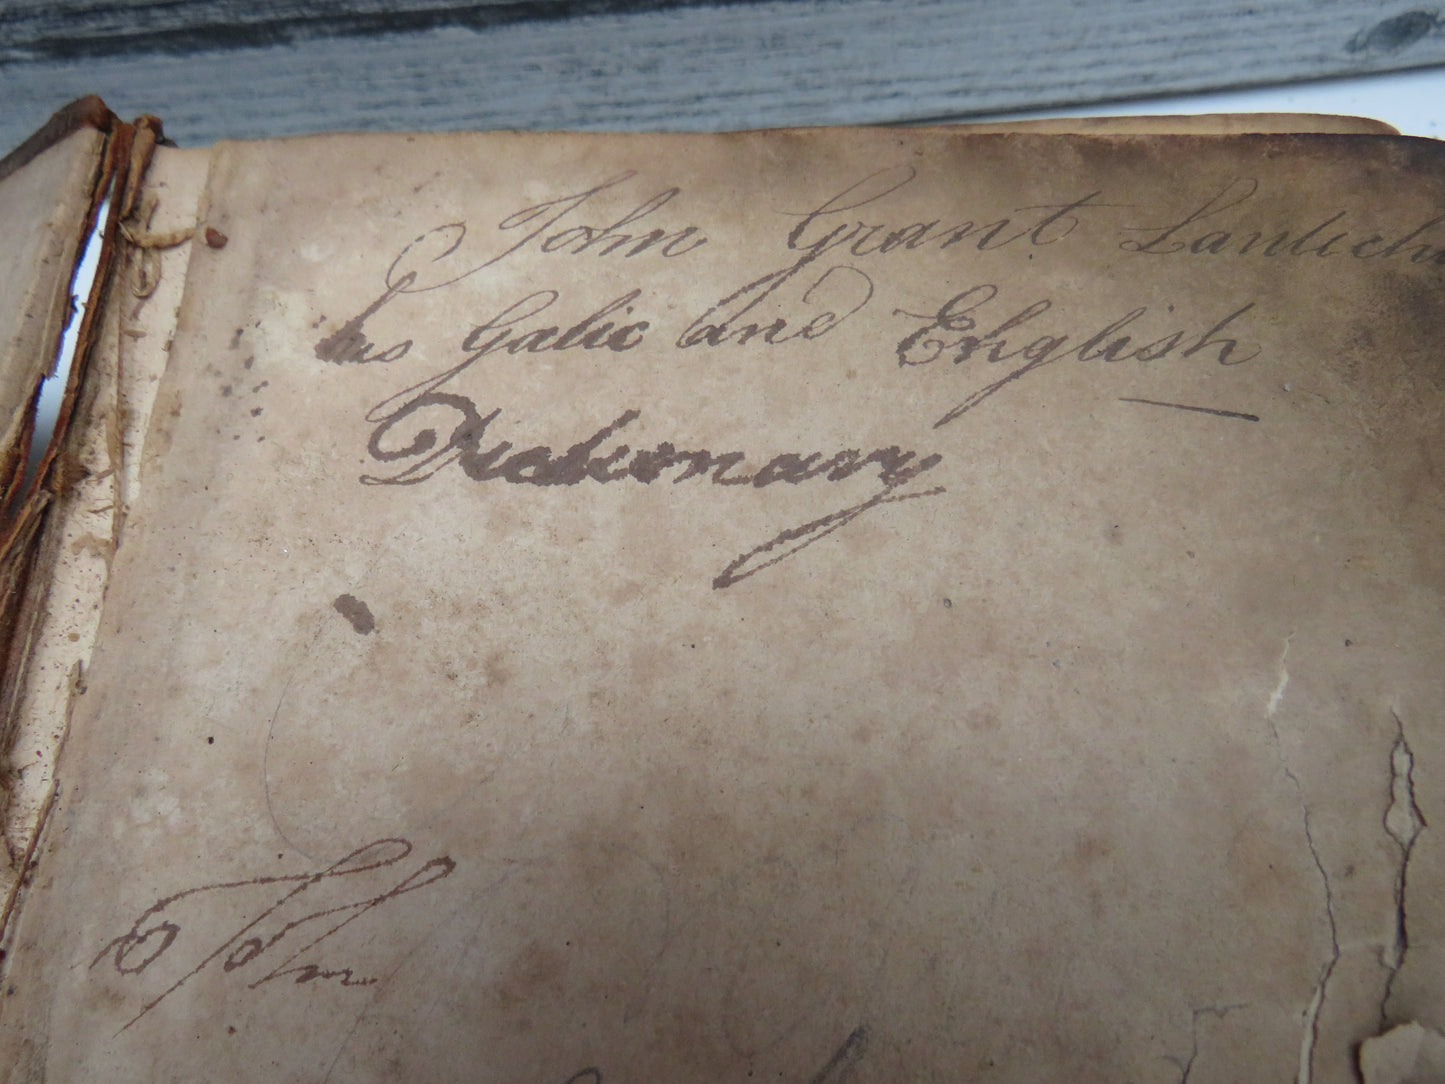 John Grant
his Galic and English
Dictionary
John